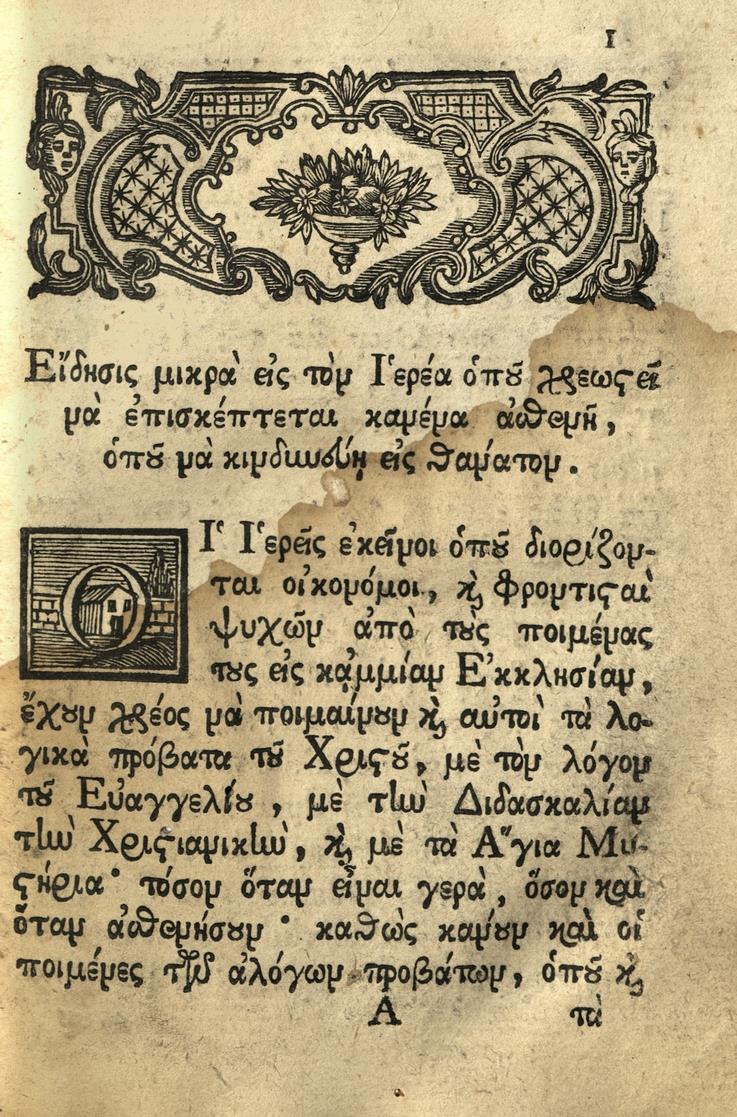 1
Εἴδησις μικρὰ εἰς τὸν Ἱερέα ὁποῦ χρεωστεῖ
νὰ ἐπισκέπτεται κανένα ἀσθενῆ,
ὁποῦ νὰ κινδυνεύῃ εἰς θάνατον.
ΟἹ Ἱερεῖς ἐκεῖνοι ὁποῦ διορίζον-
ται οἰκονόμοι, ϗ φροντισταὶ
ψυχῶν ἀπὸ τοὺς ποιμένας
τους εἰς κᾀμμίαν Ἐκκλησίαν,
ἔχουν χρέος νὰ ποιμαίνουν ϗ αὐτοὶ τὰ λο-
γικὰ πρόβατα τοῦ Χριστοῦ, μὲ τὸν λόγον
τοῦ Εὐαγγελίου, μὲ τὴν Διδασκαλίαν
τὴν Χριστιανικὴν, ϗ μὲ τὰ Ἅγια Μυ-
στήρια· τόσον ὅταν εἶναι γερὰ, ὅσον καὶ
ὅταν ἀσθενήσουν· καθὼς κάνουν καὶ οἱ
ποιμένες τῶν ἀλόγων προβάτων, ὁποῦ ϗ
Α τὰ